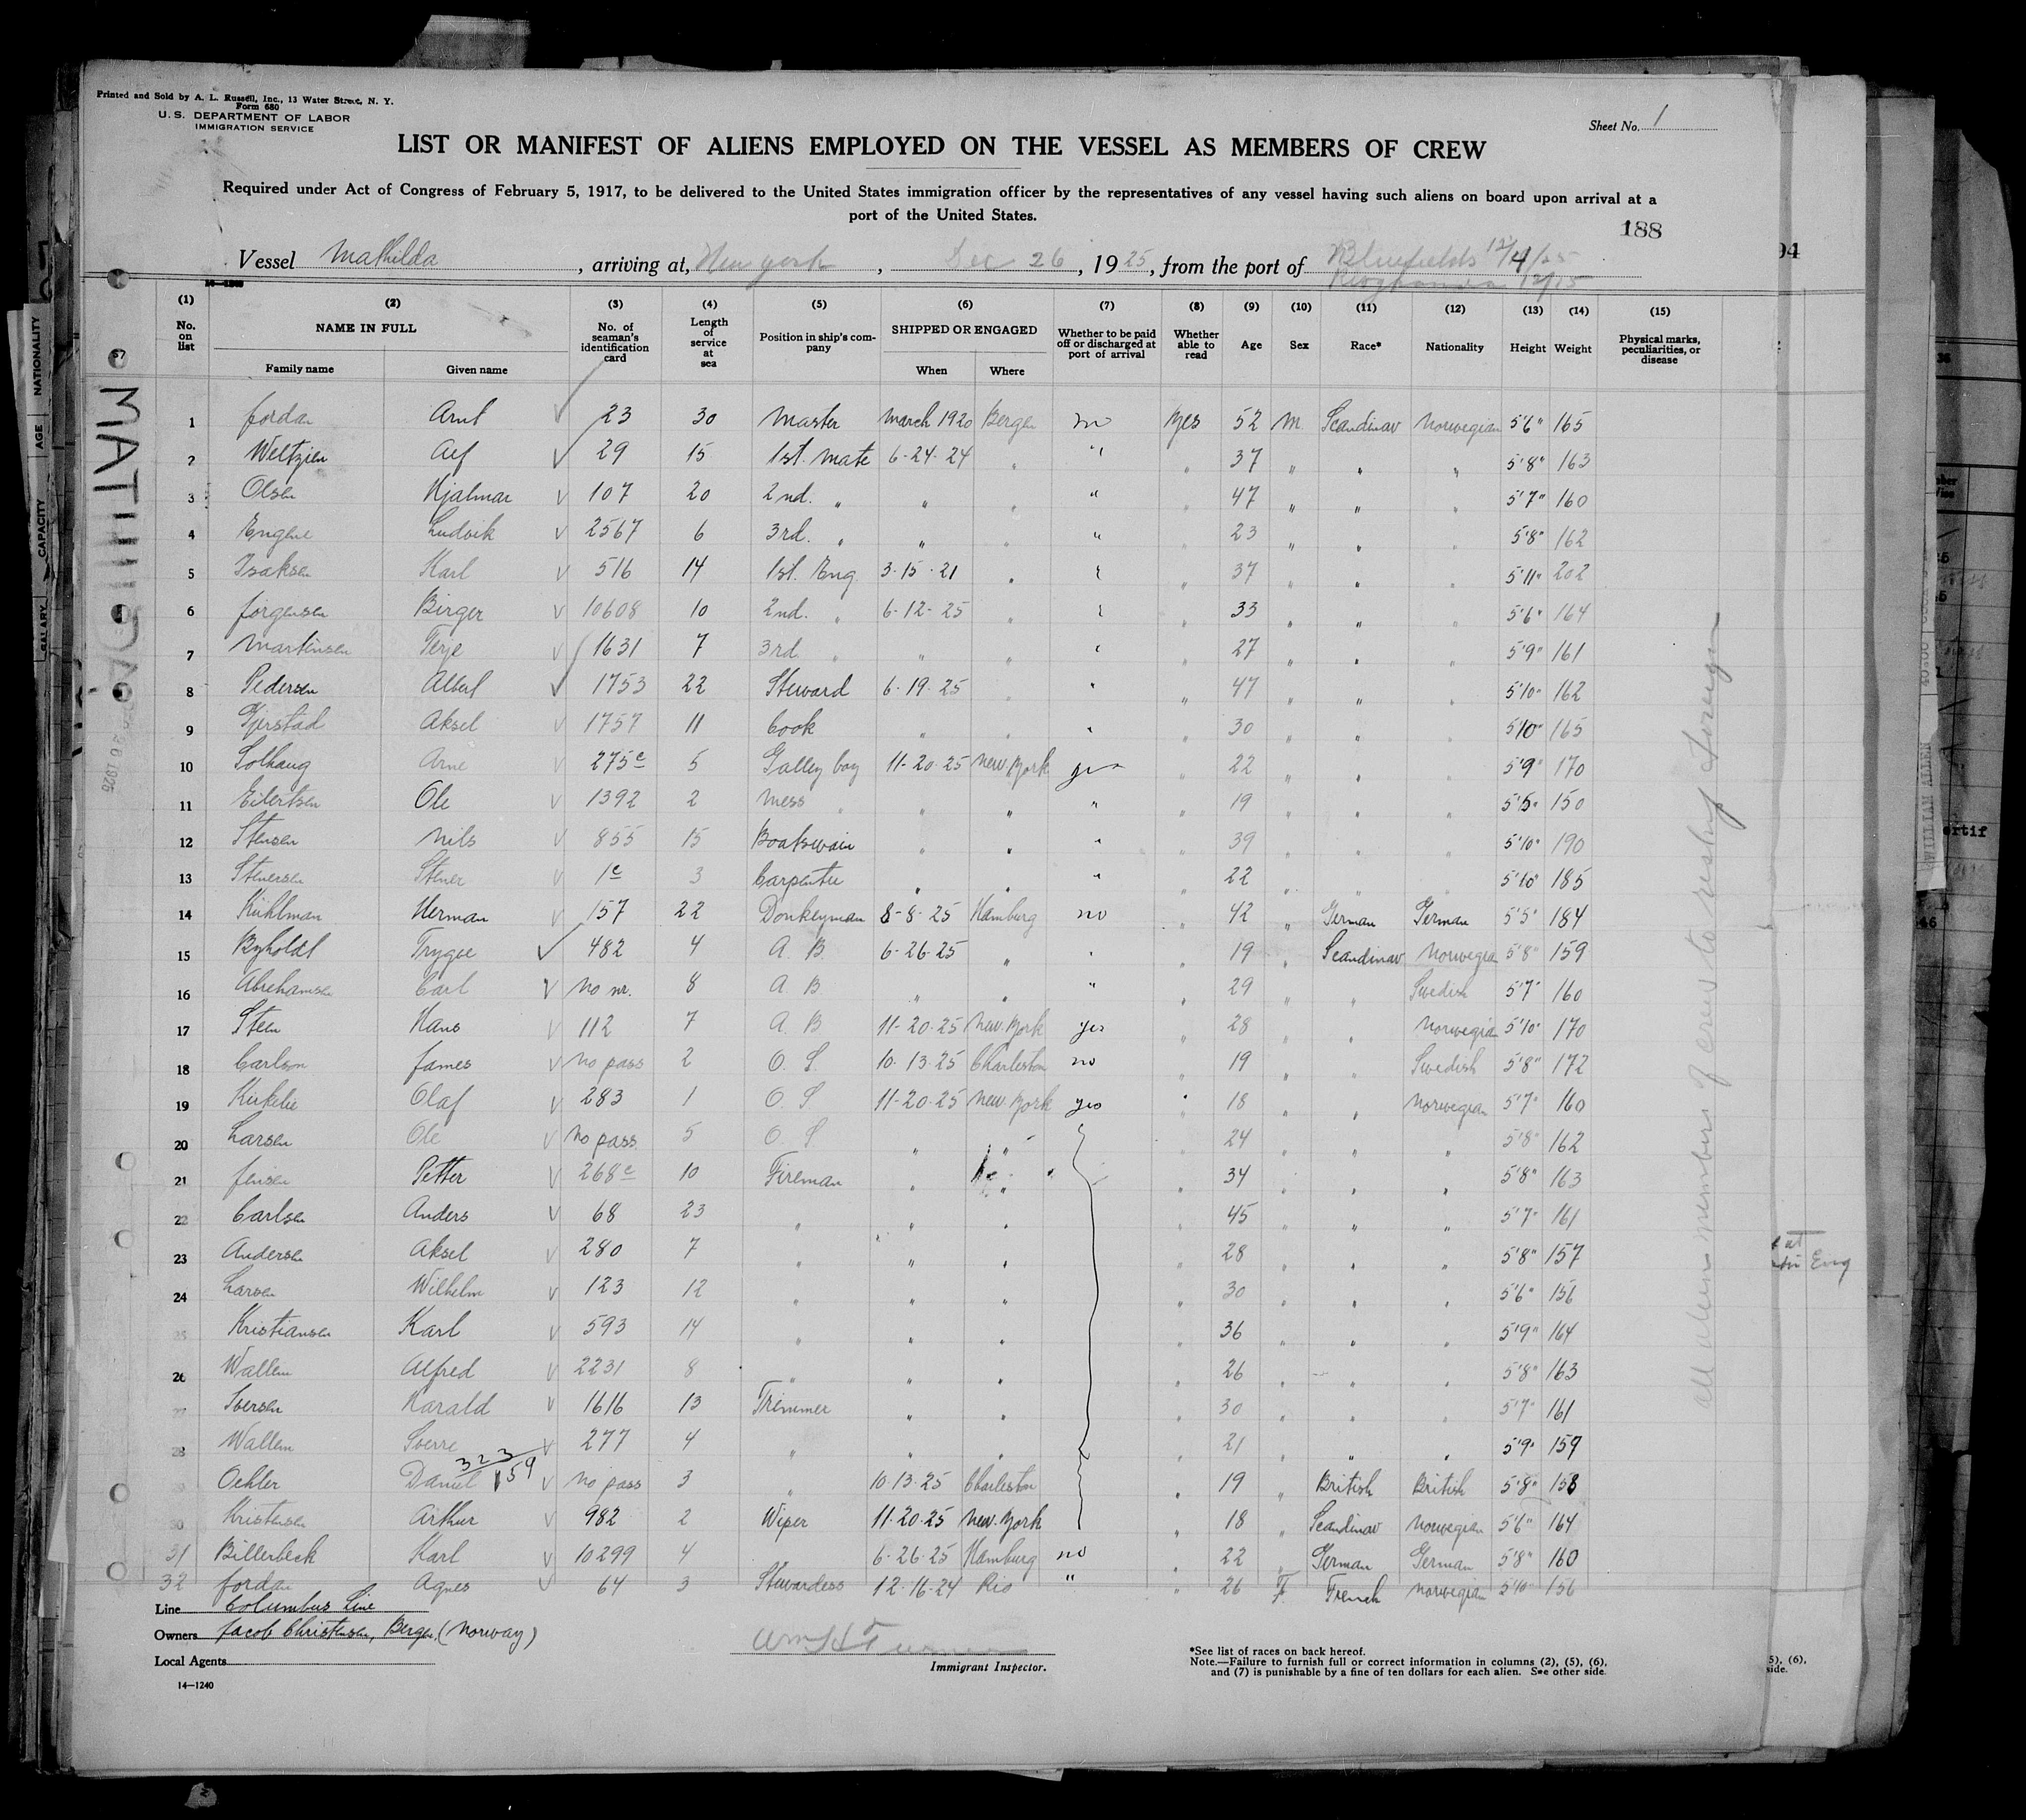 Printed and Sold by A. L. Russell, Inc., 13 Water Street, N. Y.
Form 680
U. S. DEPARTMENT OF LABOR
IMMIGRATION SERVICE
Sheet No. 1
LIST OR MANIFEST OF ALIENS EMPLOYED ON THE VESSEL AS MEMBERS OF CREW
Required under Act of Congress of February 5, 1917, to be delivered to the United States immigration officer by the representatives of any vessel having such aliens on board upon arrival at a
port of the United States.
188
Vessel Mathilda, arriving at, New York, Dec 26, 1925, from the port of Bluefields 12/4/25
12/15
(1) (2) (3) (4) (5) (6) (7) (8) (9) (10) (11) (12) (13) (14) (15)
No. on list NAME IN FULL No. of seaman's identification card Length of service at sea Position in ship's company SHIPPED OR ENGAGED Whether to be paid off or discharged at port of arrival Whether able to read Age Sex Race* Nationality Height Weight Physical marks, peculiarities, or disease
Family name Given name When Where
1 Jordan Arnt 23 30 Master March 1920 Bergen no yes 52 M. Scandinav Norwegian 5'6" 165
2 Weltzien Alf 29 15 1st. Mate 6-24-24 " " " 37 " " " 5'8" 163
3 Olsen Hjalmar 107 20 2nd. " " " " " 47 " " " 5'7" 160
4 Engene Ludvik 2567 6 3rd. " " " " " 23 " " " 5'8" 162
5 Isaksen Karl 516 14 1st. Eng. 3-15-21 " " " 37 " " " 5'11" 202
6 Jorgensen Birger 10608 10 2nd. " 6-12-25 " " " 33 " " " 5'6" 164
7 Martinsen Terje 1631 7 3rd " " " " " 27 " " " 5'9" 161
8 Pedersen Albert 1753 22 Steward 6-19-25 " " " 47 " " " 5'10" 162
9 Gjerstad Aksel 1757 11 Cook " " " " 30 " " " 5'10" 165
10 Solhaug Arne 275c 5 Galley boy 11-20-25 New York yes " 22 " " " 5'9" 170
11 Eilertsen Ole 1392 2 Mess " " " " " 19 " " " 5'5" 150
12 Stensen Nils 855 15 Boatswain " " " " 39 " " " 5'10" 190
13 Stenersen Stener 1c 3 Carpenter " " " " 22 " " " 5'10" 185
14 Kuhlman Herman 157 22 Donkeyman 8-8-25 Hamburg no " 42 " German German 5'5" 184
15 Byholdt Trygve 482 4 A. B. 6-26-25 " " " 19 " Scandinav Norwegian 5'8" 159
16 Abrahamsen Carl No nr. 8 A B " " " " 29 " " Swedish 5'7" 160
17 Steen Hans 112 7 A. B. 11-20-25 New York yes " 28 " " Norwegian 5'10" 170
18 Carlson James No pass 2 O. S. 10-13-25 Charleston no " 19 " " Swedish 5'8" 172
19 Kirkelie Olaf 283 1 O. S 11-20-25 New York yes " 18 " " Norwegian 5'7" 160
20 Larsen Ole No pass. 5 O. S " " " 24 " " " 5'8" 162
21 Jensen Petter 268c 10 Fireman " " " 34 " " " 5'8" 163
22 Carlsen Anders 68 23 " " " " 45 " " " 5'7" 161
23 Andersen Aksel 280 7 " " " " 28 " " " 5'8" 157
24 Larsen Wilhelm 123 12 " " " " 30 " " " 5'6" 156
25 Kristiansen Karl 593 14 " " " " 36 " " " 5'9" 164
26 Wallem Alfred 2231 8 " " " " 26 " " " 5'8" 163
27 Iversen Harald 1616 13 Trimmer " " " 30 " " " 5'7" 161
28 Wallem Sverre 277 4 " " " " 21 " " " 5'9" 159
323
159
Oehler Daniel No pass 3 " 10-13-25 Charleston " 19 " British British 5'8" 158
30 Kristensen Arthur 982 2 Wiper 11-20-25 New York " 18 " Scandinav Norwegian 5'6" 164
31 Billerbeck Karl 10299 4 " 6-26-25 Hamburg no " 22 " German German 5'8" 160
32 Jordan Agnes 64 3 Stewardess 12-16-24 Rio " " 26 F. French Norwegian 5'10" 156
all aliens members of crew to reship foreign
MATHILDA
Line Columbus Line
Owners Jacob Christensen, Bergen. (Norway)
Local Agents
14—1240
Wm H Turner
Immigrant Inspector.
*See list of races on back hereof.
Note.—Failure to furnish full or correct information in columns (2), (5), (6),
and (7) is punishable by a fine of ten dollars for each alien. See other side.
94
5), (6),
side.
Eng
NATIONALITY
AGE
CAPACITY
SALARY